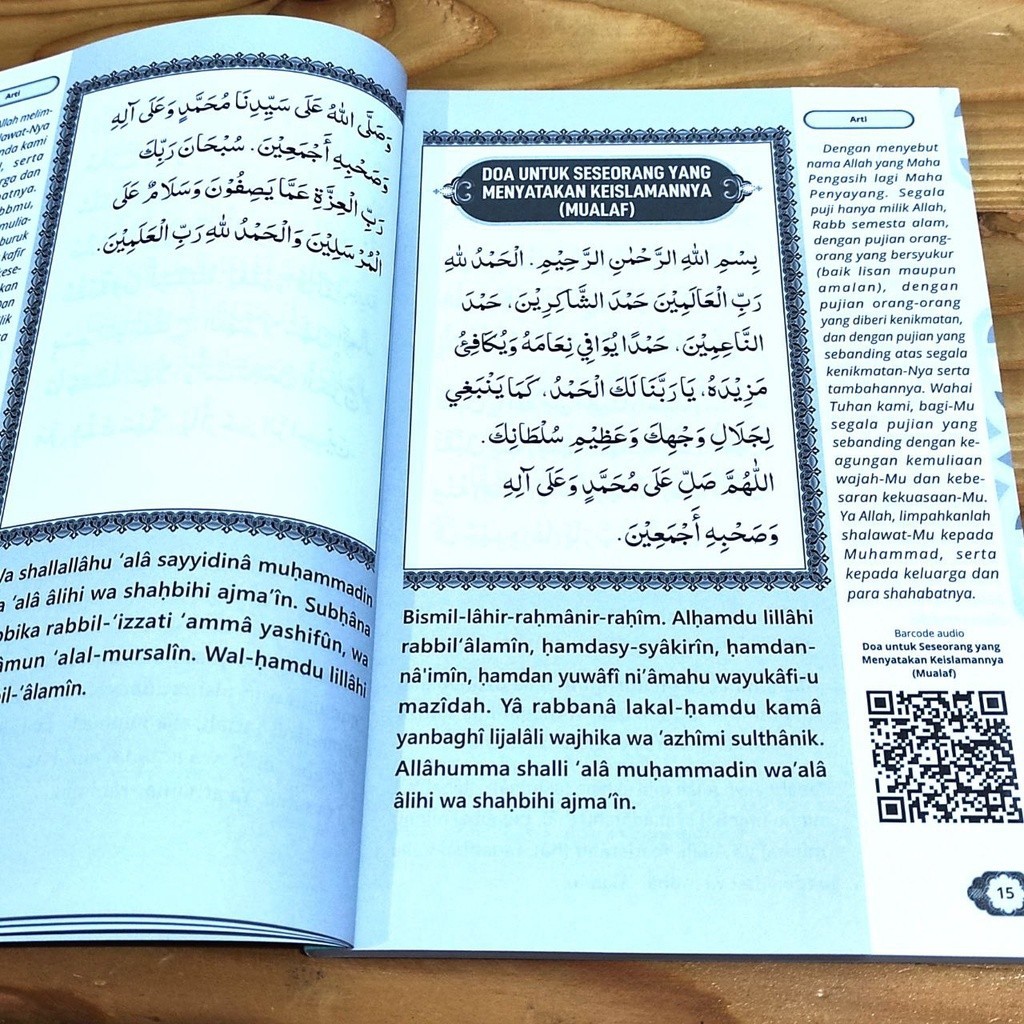 Arti
Allah melim-
lawat-Nya
nda kami
, serta
rga dan
atnya.
bbmu,
mulia-
buruk
kafir
ese-
kan
Dan
lik
a
وَصَلَّى اللهُ عَلَى سَيِّدِنَا مُحَمَّدٍ وَعَلَى آلِهِ
وَصَحْبِهِ أَجْمَعِيْنَ. سُبْحَانَ رَبِّكَ
رَبِّ الْعِزَّةِ عَمَّا يَصِفُوْنَ وَسَلَامٌ عَلَى
الْمُرْسَلِيْنَ وَالْحَمْدُ للهِ رَبِّ الْعَلَمِيْنَ.
Wa shallallâhu ‘alâ sayyidinâ muḥammadin
a ‘alâ âlihi wa shaḥbihi ajma‘în. Subḥâna
bbika rabbil-‘izzati ‘ammâ yashifûn, wa
âmun ‘alal-mursalîn. Wal-ḥamdu lillâhi
bil-‘âlamîn.
DOA UNTUK SESEORANG YANG
MENYATAKAN KEISLAMANNYA
(MUALAF)
بِسْمِ اللهِ الرَّحْمٰنِ الرَّحِيْمِ. الْحَمْدُ للهِ
رَبِّ الْعَالَمِيْنَ حَمْدَ الشَّاكِرِيْنَ، حَمْدَ
النَّاعِمِيْنَ، حَمْدًا يُوَافِي نِعَامَهُ وَيُكَافِئُ
مَزِيْدَهُ، يَا رَبَّنَا لَكَ الْحَمْدُ، كَمَا يَنْبَغِي
لِجَلَالِ وَجْهِكَ وَعَظِيْمِ سُلْطَانِكَ.
اللّٰهُمَّ صَلِّ عَلَى مُحَمَّدٍ وَعَلَى آلِهِ
وَصَحْبِهِ أَجْمَعِيْنَ.
Bismil-lâhir-raḥmânir-raḥîm. Alḥamdu lillâhi
rabbil‘âlamîn, ḥamdasy-syâkirîn, ḥamdan-
nâ'imîn, ḥamdan yuwâfî ni’âmahu wayukâfi-u
mazîdah. Yâ rabbanâ lakal-ḥamdu kamâ
yanbaghî lijalâli wajhika wa ‘azhîmi sulthânik.
Allâhumma shalli ‘alâ muḥammadin wa’alâ
âlihi wa shaḥbihi ajma’în.
Arti
Dengan menyebut
nama Allah yang Maha
Pengasih lagi Maha
Penyayang. Segala
puji hanya milik Allah,
Rabb semesta alam,
dengan pujian orang-
orang yang bersyukur
(baik lisan maupun
amalan), dengan
pujian orang-orang
yang diberi kenikmatan,
dan dengan pujian yang
sebanding atas segala
kenikmatan-Nya serta
tambahannya. Wahai
Tuhan kami, bagi-Mu
segala pujian yang
sebanding dengan ke-
agungan kemuliaan
wajah-Mu dan kebe-
saran kekuasaan-Mu.
Ya Allah, limpahkanlah
shalawat-Mu kepada
Muhammad, serta
kepada keluarga dan
para shahabatnya.
Barcode audio
Doa untuk Seseorang yang
Menyatakan Keislamannya
(Mualaf)
15